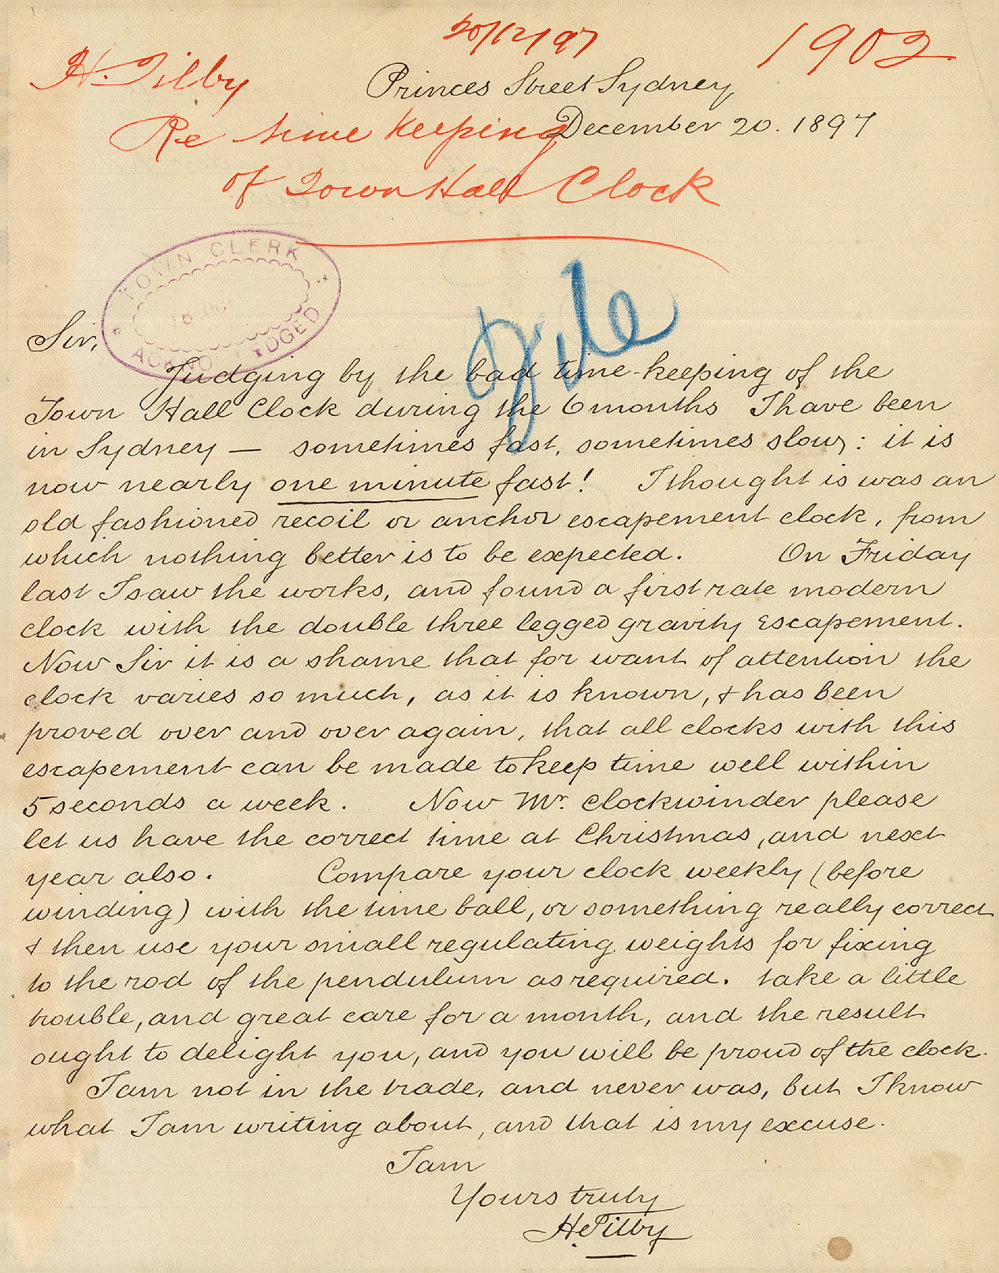 20/12/97
1902
H. Tilby
Princes Street Sydney
Re time keeping
December 20. 1897
of Town Hall Clock
TOWN CLERK
ACKNOWLEDGED
File
Sir,
Judging by the bad time-keeping of the
Town Hall Clock during the 6 months I have been
in Sydney — sometimes fast, sometimes slow; it is
now nearly one minute fast! I thought is was an
old fashioned recoil or anchor escapement clock, from
which nothing better is to be expected. On Friday
last I saw the works, and found a first rate modern
clock with the double three legged gravity escapement.
Now Sir it is a shame that for want of attention the
clock varies so much, as it is known, & has been
proved over and over again, that all clocks with this
escapement can be made to keep time well within
5 seconds a week. Now Mr. Clockwinder please
let us have the correct time at Christmas, and next
year also. Compare your clock weekly (before
winding) with the time ball, or something really correct
& then use your small regulating weights for fixing
to the rod of the pendulum as required. take a little
trouble, and great care for a month, and the result
ought to delight you, and you will be proud of the clock.
I am not in the trade, and never was, but I know
what I am writing about, and that is my excuse.
I am
Yours truly
H. Tilby